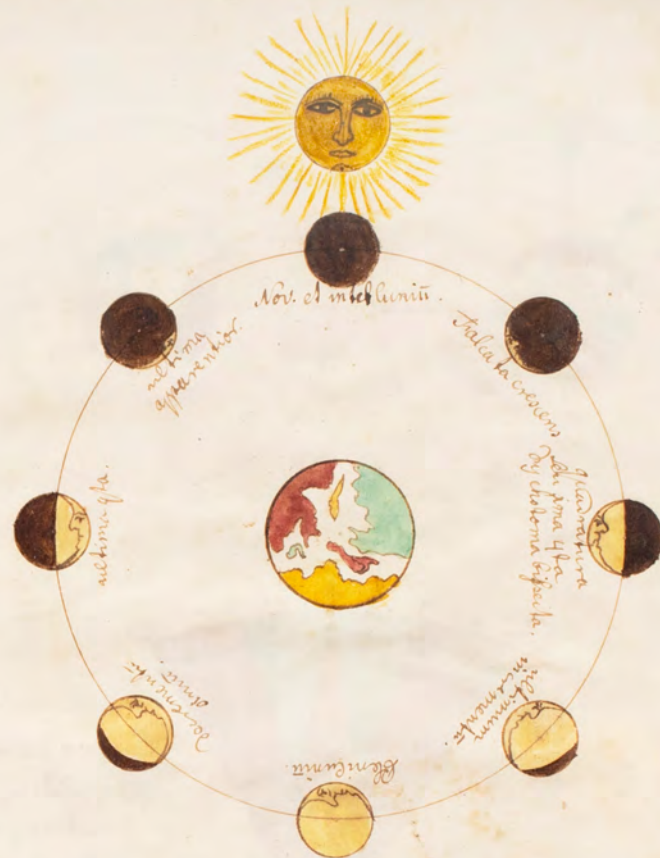 Nov. et interluniũ.
falcata crescens
quadratura
seu prima 4ta
dychotoma bissecta.
ultimum
incrementũ.
Pleniluniũ.
decrementũ
ultima 4ta.
ultima
apparentior.